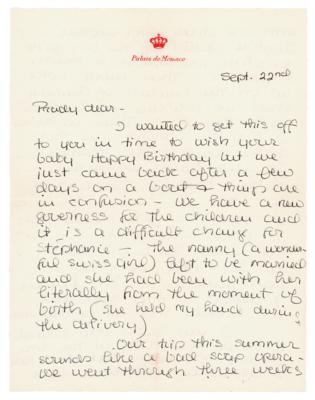 Palais de Monaco
Sept. 22nd
Prudy dear -
I wanted to get this off
to you in time to wish your
baby Happy Birthday but we
just came back after a few
days on a boat & things are
in confusion - We have a new
governess for the children and
it is a difficult change for
Stephanie - The nanny (a wonder-
ful swiss girl) left to be married
and she had been with her
literally from the moment of
birth (she held my hand during
the delivery)
Our trip this summer
sounds like a bad soap opera -
We went through three weeks